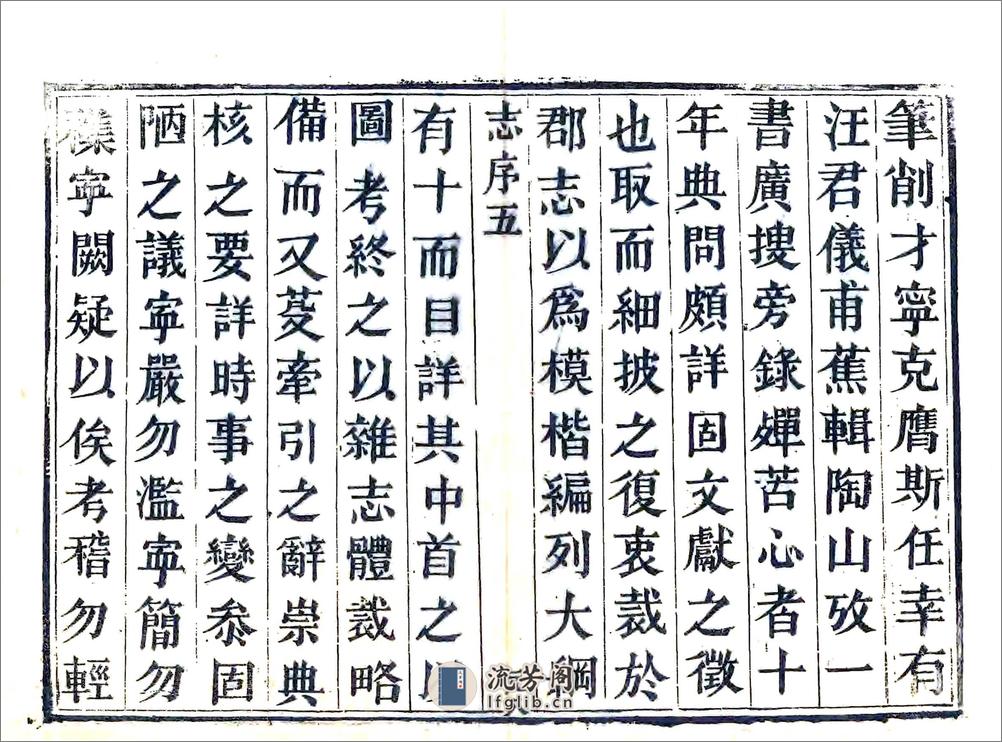 筆削才寧克膺斯任幸有
汪君儀甫蕉輯陶山攷一
書廣搜旁錄殫苦心者十
年典問頗詳固文獻之徵
也取而細披之復衷裁於
郡志以爲模楷編列大綱
志序五
有十而目詳其中首之
圖考終之以雜志體裁略
備而又芟牽引之辭崇典
核之要詳時事之變叅固
陋之議寧嚴勿濫寧簡勿
寧闕疑以俟考稽勿輕
流芳阁
lfglib.cn